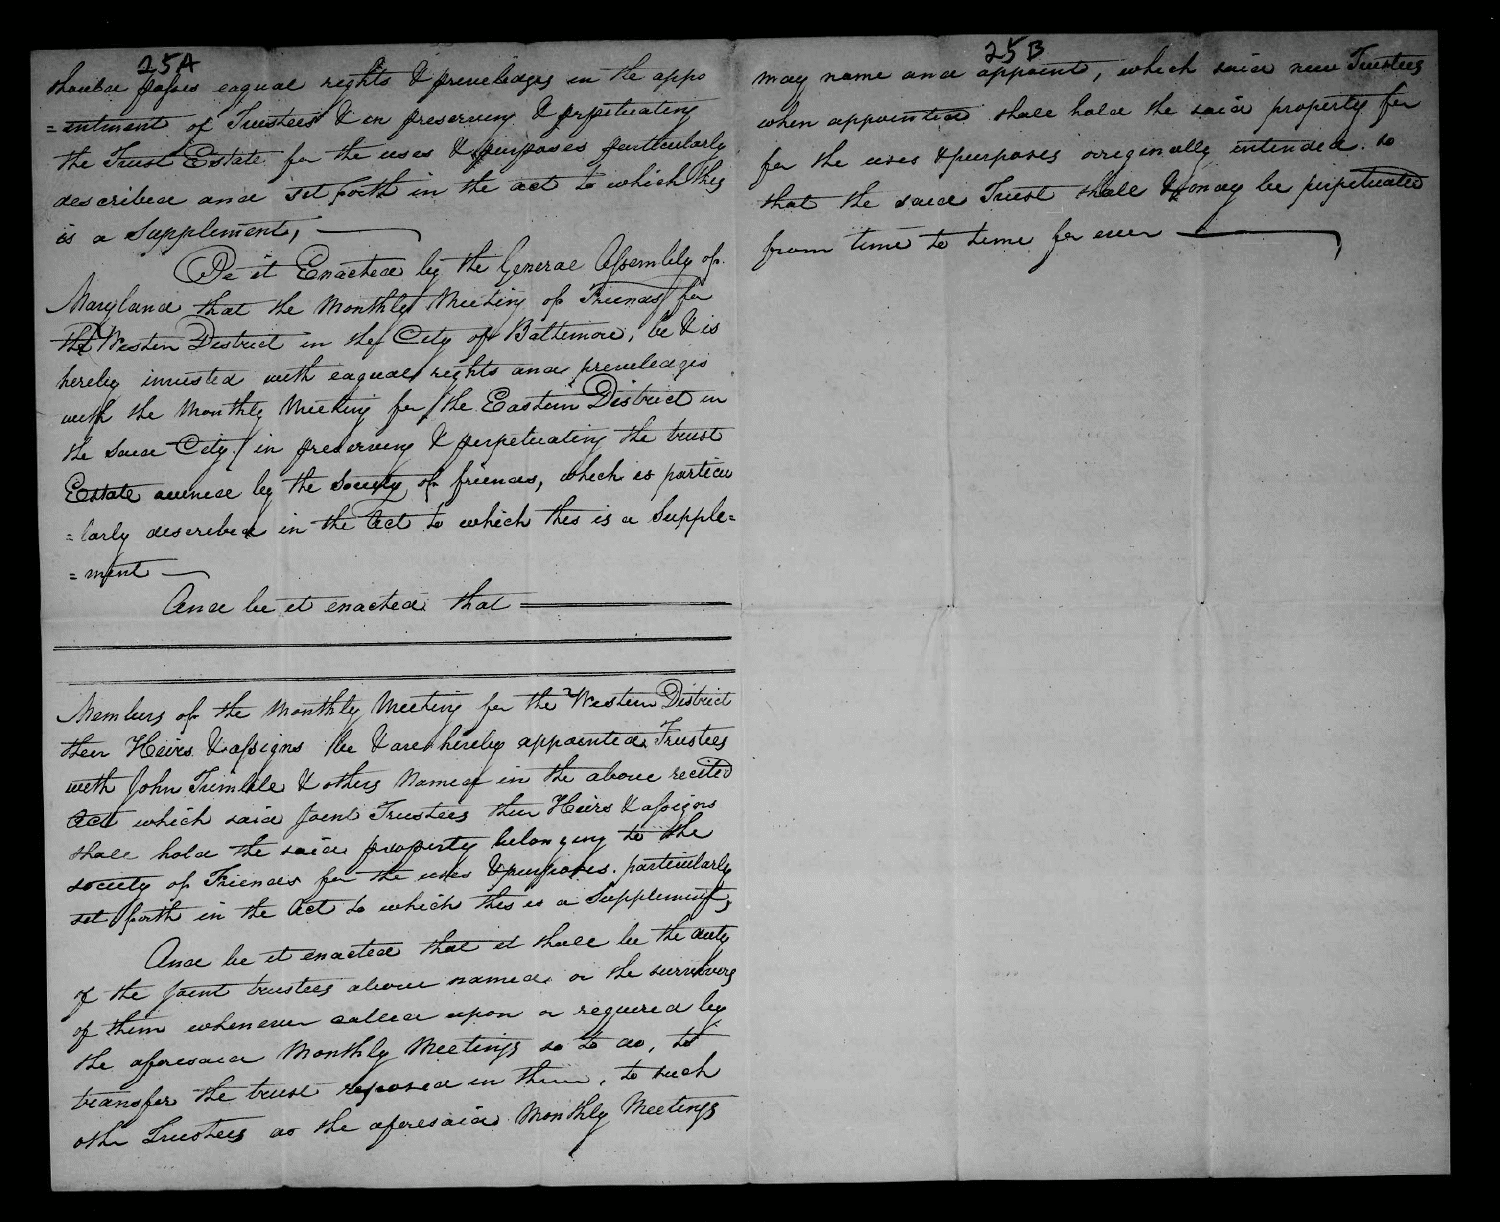 25A
should posses eaqual rights & priveledges in the appo
=intment of Trustees & in preserving & perpetuating
the Trust Estate for the uses & purposes particularly
described and set forth in the act to which this
is a Supplement,
Be it Enacted by the General Assembly of
Maryland that the Monthly Meeting of Friends for
the Western District in the City of Baltimore, be & is
hereby invested with eaqual rights and priveledges
with the Monthly Meeting for the Eastern District in
the said City in preserving & perpetuating the trust
Estate owned by the Society of friends, which is particu
=larly described in the Act to which this is a Supple=
=ment
And be it enacted that
Members of the Monthly Meeting for the Western District
their Heirs & assigns be & are hereby appointed Trustees
with John Trimble & others named in the above recited
Act which said Joint Trustees their Heirs & assigns
shall hold the said property belonging to the
society of Friends for the uses & purposes particularly
set forth in the Act to which this is a Supplement,
And be it enacted that it shall be the duty
of the Joint trustees above named or the survivors
of them whenever called upon or required by
the aforesaid Monthly Meetings so to do, to
transfer the trust reposed in them, to such
othr Trustees as the aforesaid Monthly Meetings
25B
may name and appoint, which said new Trustees
when appointed shall hold the said property for
for the uses & purposes origionally intended. so
that the said Trust shall & may be perpetuated
from time to time for ever